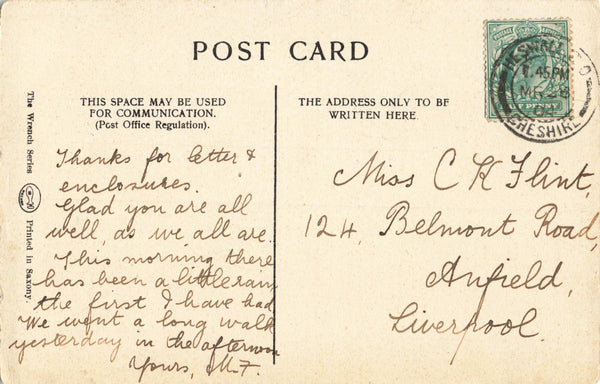 POST CARD
THIS SPACE MAY BE USED
FOR COMMUNICATION.
(Post Office Regulation).
THE ADDRESS ONLY TO BE
WRITTEN HERE.
The Wrench Series
Printed in Saxony.
Thanks for letter &
enclosures.
Glad you are all
well, as we all are.
This morning there
has been a little rain
the first I have had
We went a long walk
yesterday in the afternoon
Yours, M.F.
Miss C K Flint,
124, Belmont Road,
Anfield,
Liverpool.
HESWALL
.45PM
MR 28
CHESHIRE
PENNY